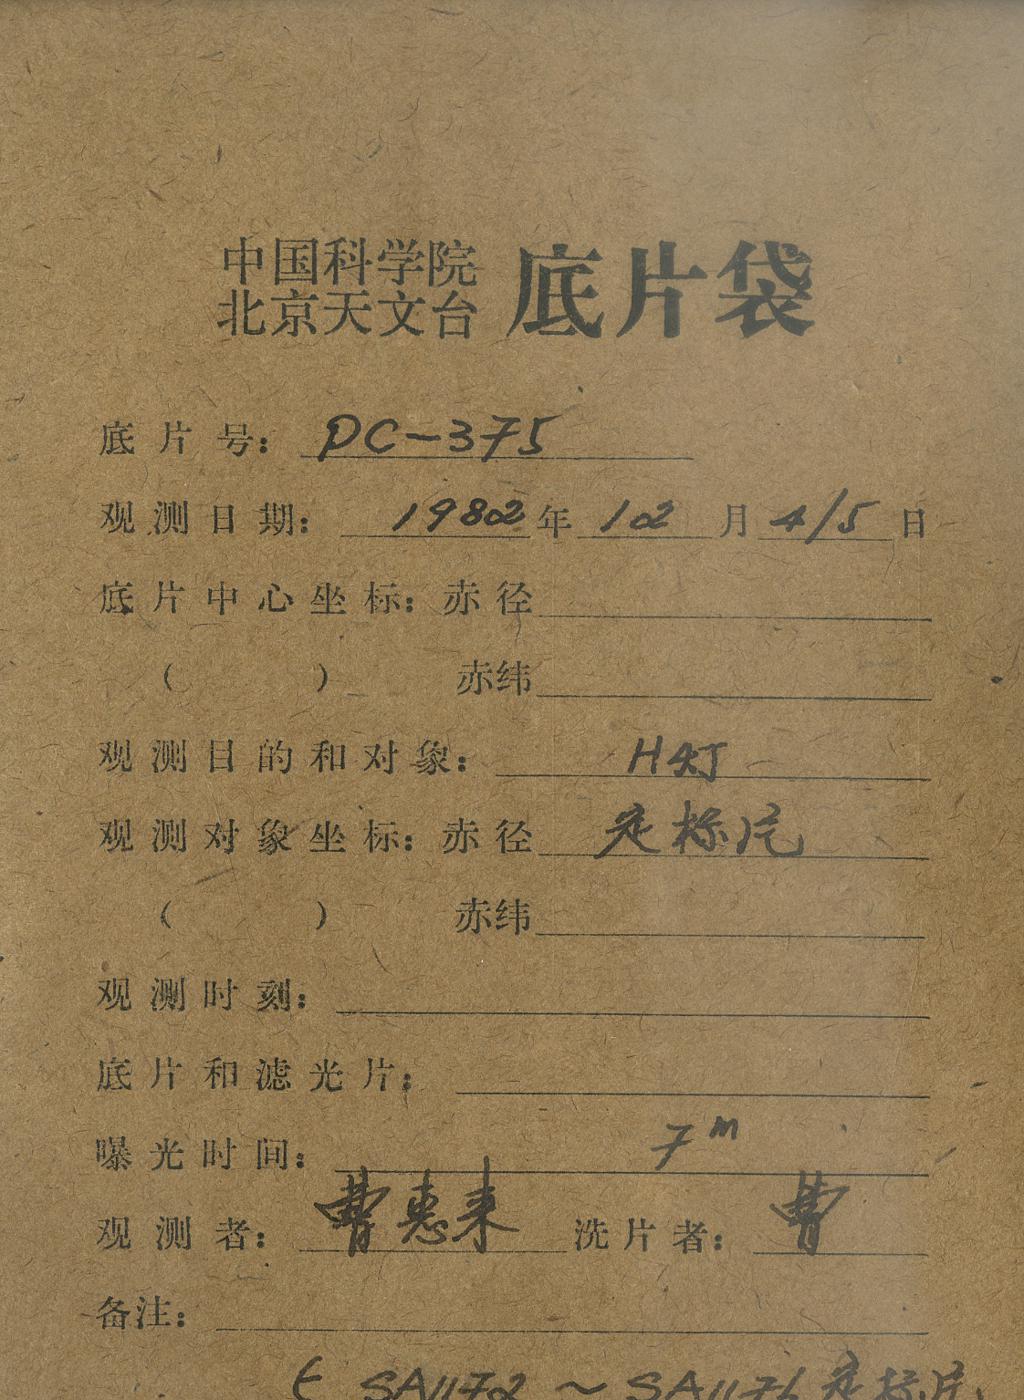 中国科学院
北京天文台 底片袋
底片号: DC-375
观测日期: 1982年12月4/5日
底片中心坐标: 赤径
( ) 赤纬
观测目的和对象: H灯
观测对象坐标: 赤径 定标片
( ) 赤纬
观测时刻:
底片和滤光片:
曝光时间: 7m
观测者: 曹惠来 洗片者: 曹
备注:
SA1172 ~ SA1176 定标片